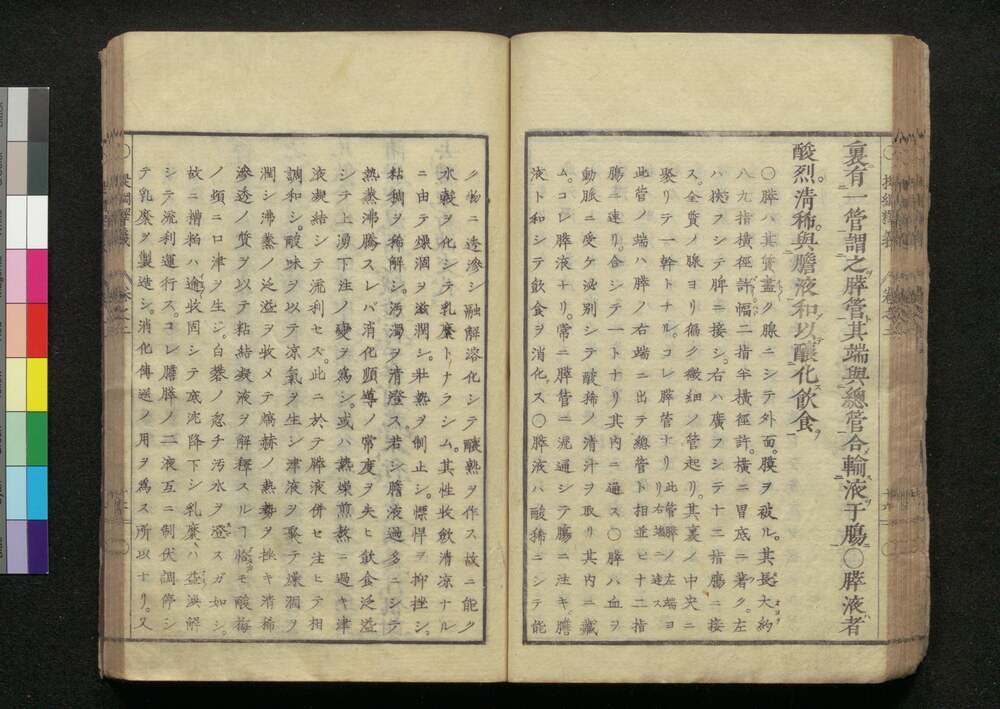 裏有一管謂之膵管其端與總管合輸液于膓○膵液者
酸烈清稀與膽液和以釀化飲食
○膵ハ其質盡ク腺ニシテ外面膜ヲ被ル。其長大約
八九指横徑許幅二指半横徑許。横ニ胃底ニ著ク。左
ハ狹フシテ脾ニ接シ。右ハ廣フシテ十二指膓ニ接
ス。全質ノ腺ヨリ偏ク微細ノ管起リ。其裏ノ中央ニ
聚リテ一幹トナル。コレ膵管ナリ此管膵ノ左端ヨリ右端ニ達ス
此管ノ端ハ膵ノ右端ニ出テ總管ト相並ヒ十二指
膓ニ連リ。合シテ一トナリ其内ニ通ス○膵ハ血ヲ
動脈ニ受ケ泌別シテ酸稀ノ清汁ヲ取リ其内ニ藏
ム。コレ膵液ナリ。常ニ膵管ニ流通シテ膓ニ注キ。膽
液ト和シテ飲食ヲ消化ス○膵液ハ酸稀ニシテ能
ク物ニ透滲シ融解溶化シテ醸熟ヲ作ス故ニ能ク
水穀ヲ化シテ乳糜トナラシム。其性收飲清凉ナル
ニ由テ燥涸ヲ滋潤シ。壯熱ヲ制止シ。慓悍ヲ抑挫シ。
粘稠ヲ稀解シ。汚濁ヲ清澄ス。若シ膽液過多ニシテ
熱蒸沸騰スレバ消化顕導ノ常度ヲ失ヒ飲食泛溢
シテ上湧下注ノ變ヲ爲シ。或ハ熱燥煎熬ニ過キ津
液凝結シテ流利セス。此ニ於テ膵液併セ注ヒテ相
調和シ。酸味ヲ以テ凉氣ヲ生シ津液ヲ聚テ燥涸ヲ
潤シ沸蒸ノ泛溢ヲ收メテ熇赫ノ熱勢ヲ挫キ清稀
滲透ノ質ヲ以テ粘結凝液ヲ解釋スルヿ恰モ酸梅
ノ頬ニ口津ヲ生シ。白礬ノ忽チ汚水ヲ澄スガ如シ。
故ニ糟粕ハ逾收固シテ底ニ降下シ乳糜ハ益渙解
シテ流利運行ス。コレ膽膵ノ二液互ニ制伏調停シ
テ乳糜ヲ製造シ。消化傳送ノ用ヲ爲ス所以ナリ。又